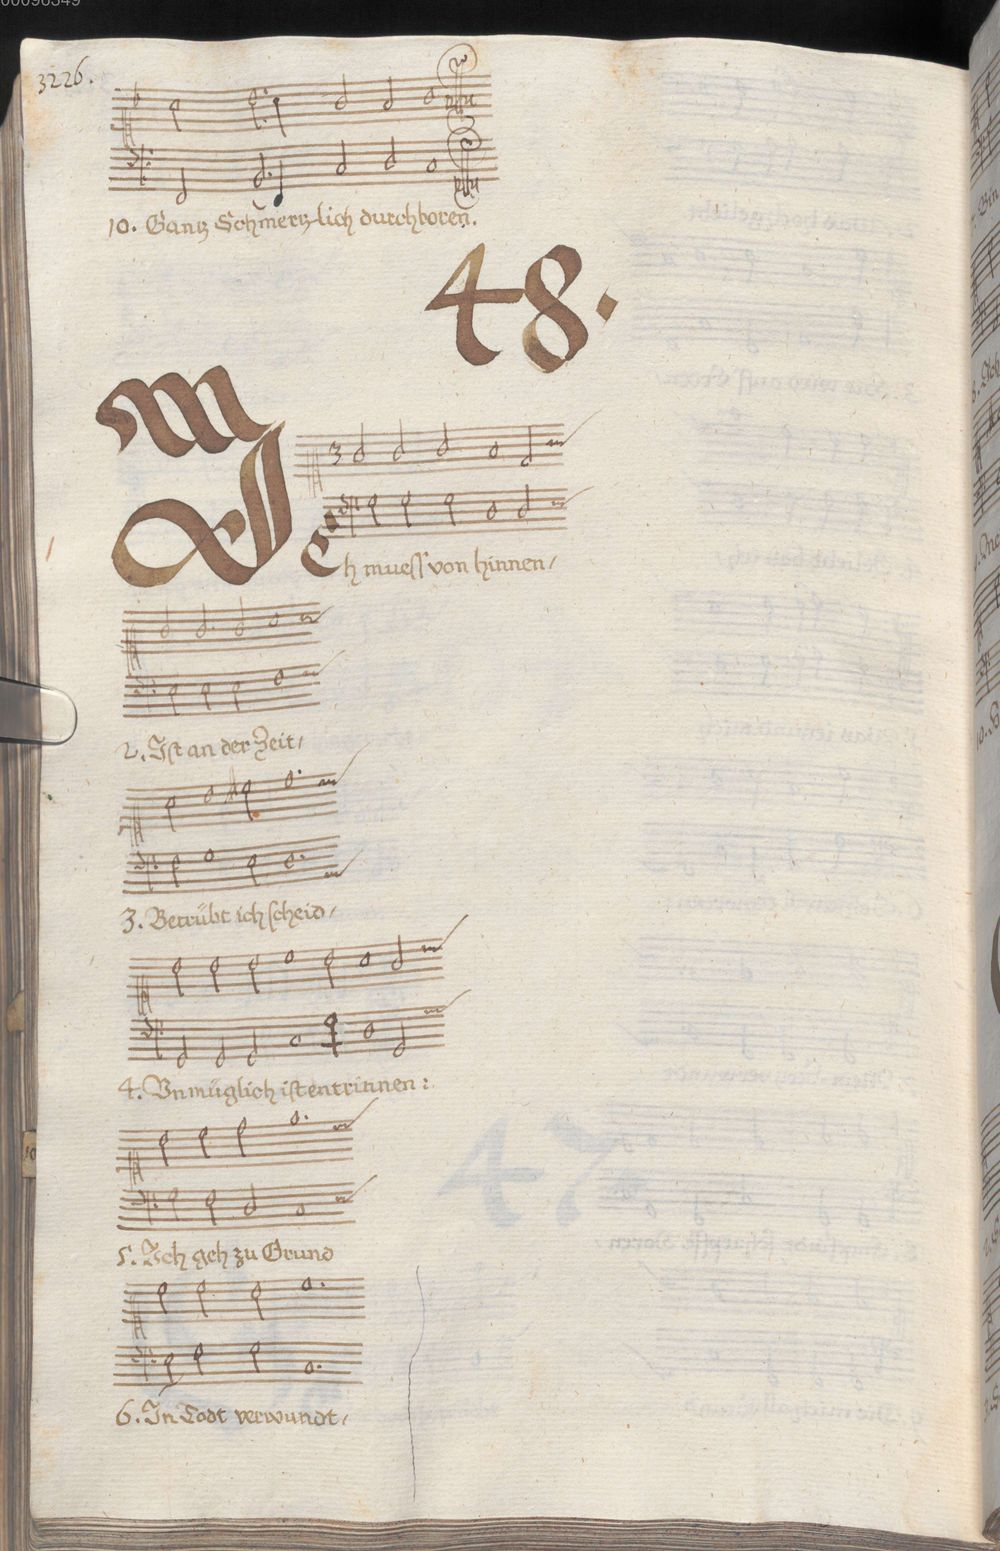 00096349
3226.
10. Gantz Schmertzlich durchboren.
48.
ICh muess von hinnen/
2. Ist an der Zeit/
3. Betrübt ich scheid/
4. Vnmüglich ist entrinnen:
5. Ich geh zu Grund
6. In Todt verwundt/